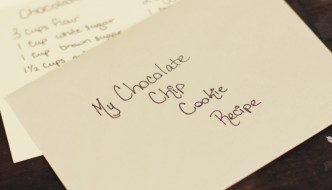 Chocolate
3 cups flour
1 cup white sugar
1 cup brown sugar
1½ cups
My Chocolate
Chip
Cookie
Recipe